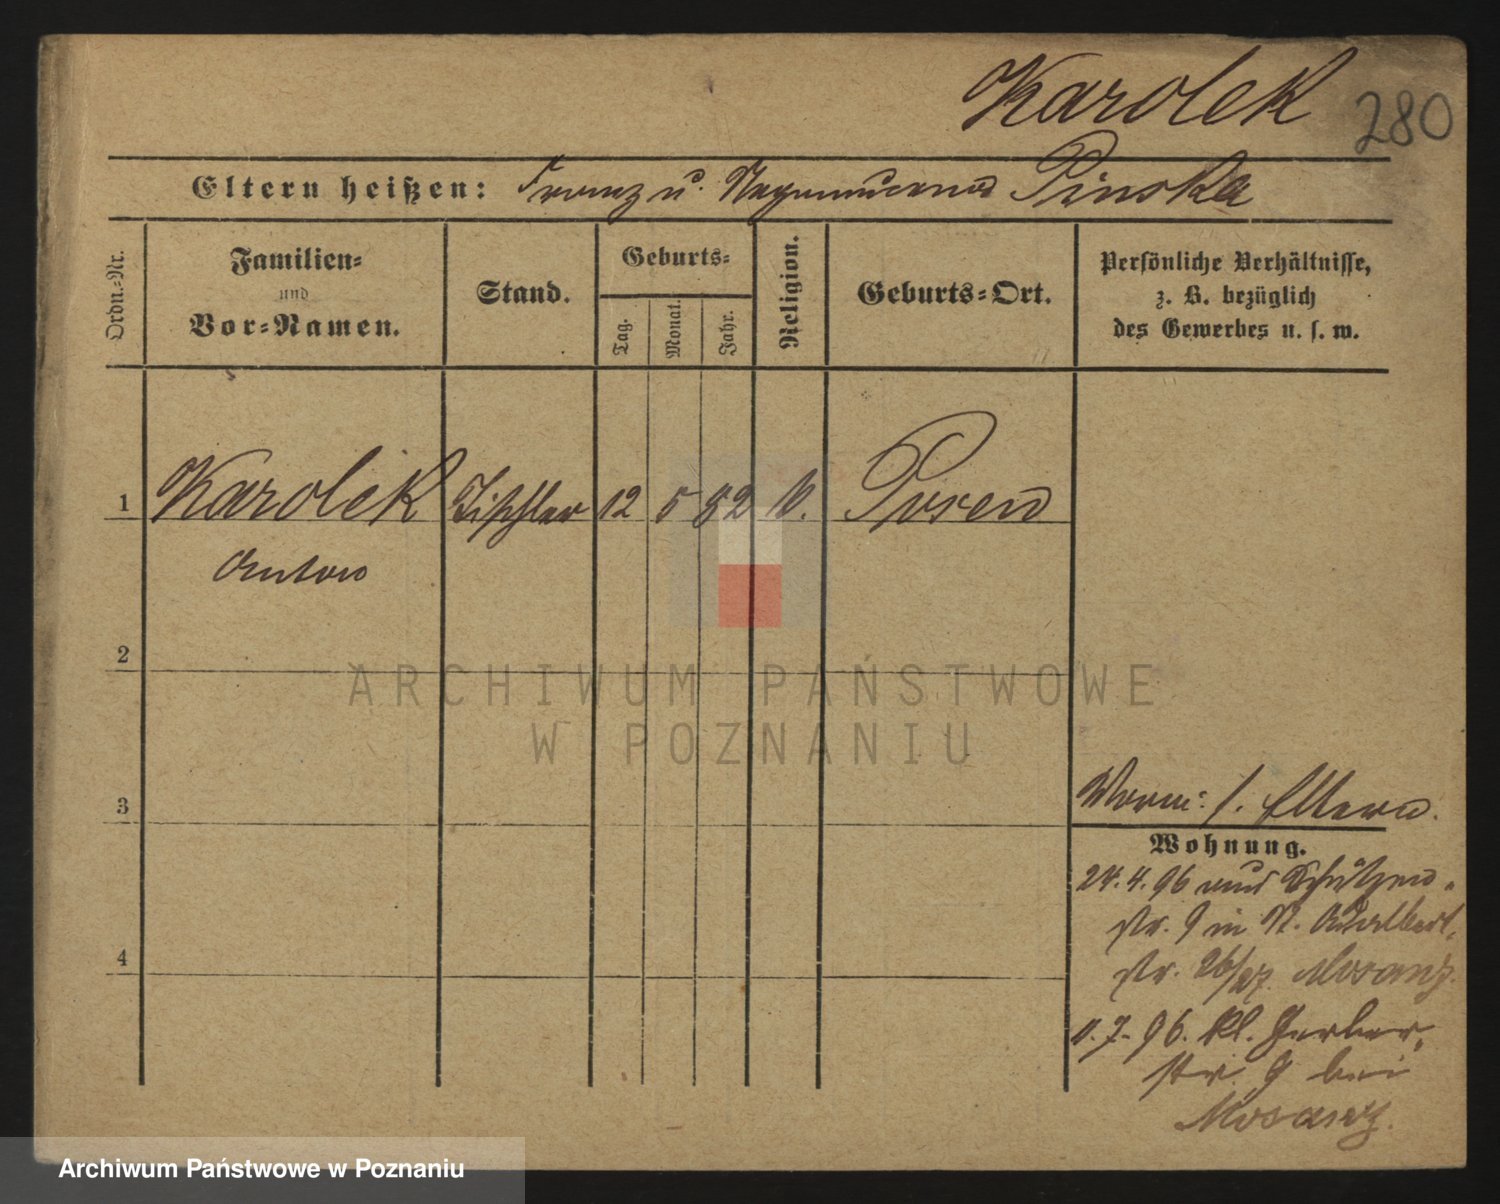 Karolek
280
Eltern heißen: Franz u. Nepomucena Pinska
Ordn.-Nr.
Familien-
und
Vor-Namen.
Stand.
Geburts-
Tag.
Monat.
Jahr.
Religion.
Geburts-Ort.
Persönliche Verhältnisse,
z. B. bezüglich
des Gewerbes u. s. w.
1 Karolek Tischler 12 5 82 k. Posen
Anton
2
3
4
ARCHIWUM PAŃSTWOWE
W POZNANIU
Worm: s. Eltern.
Wohnung.
24.4.96 Schützen-
str. 9 in N. Adalbert-
str. 26/27. Mosanz.
7.96. kl. Gerber-
str. 9 bei
Mosanz.
Archiwum Państwowe w Poznaniu